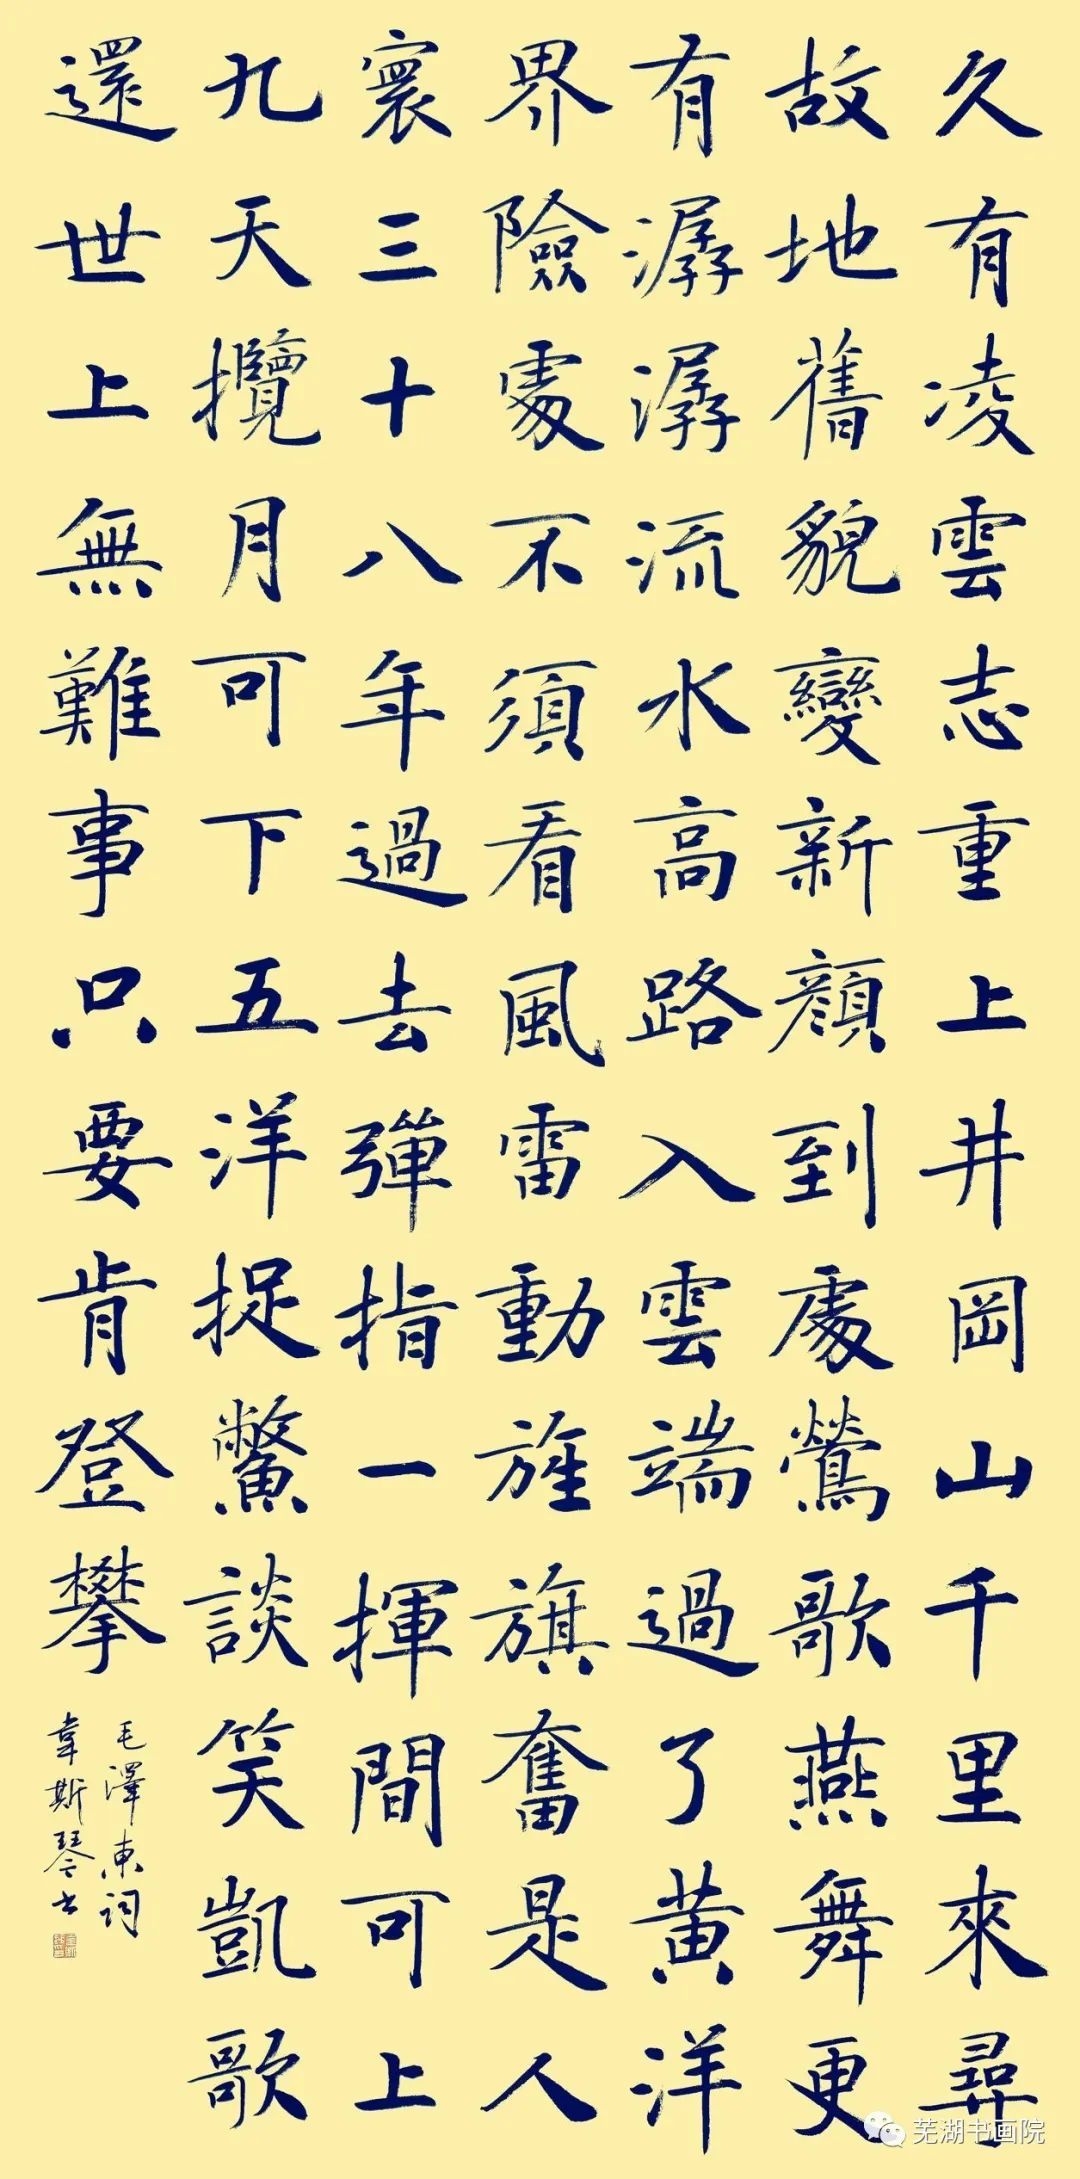 久有凌雲志重上井岡山千里來尋
故地舊貌變新顔到處鶯歌燕舞更
有潺潺流水高路入雲端過了黃洋
界險處不須看風雷動旌旗奮是人
寰三十八年過去彈指一揮間可上
九天攬月可下五洋捉鱉談笑凱歌
還世上無難事只要肯登攀
毛澤東詞
韋斯琴书
芜湖书画院